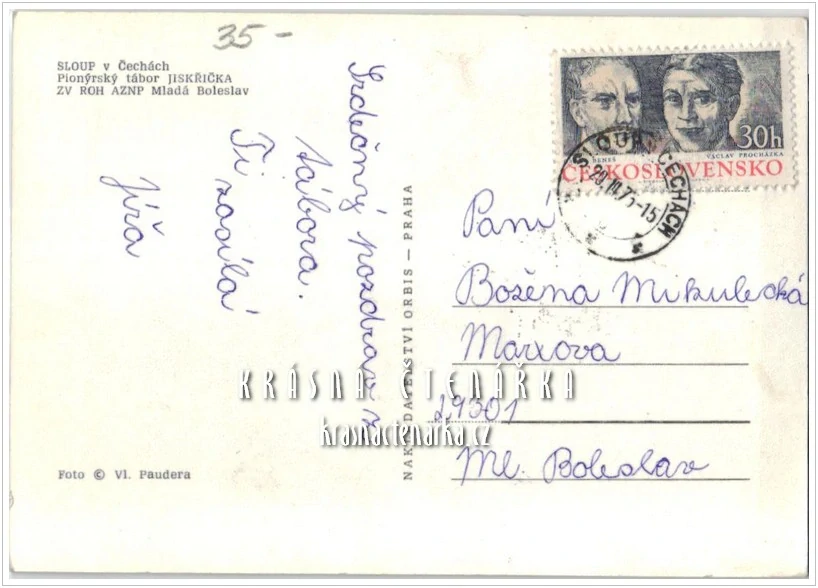 35-
SLOUP v Čechách
Pionýrský tábor JISKŘIČKA
ZV ROH AZNP Mladá Boleslav
Srdečný pozdrav z
tábora.
Ti zasílá
Jiřa
Foto © Vl. Paudera
NAKLADATELSTVÍ ORBIS — PRAHA
BENEŠ
VÁCLAV PROCHÁZKA
30h
ČESKOSLOVENSKO
SLOUP V ČECHÁCH
Paní
Božena Mikulecká
Marxova
29301
Ml. Boleslav
KRÁSNÁ ČTENÁŘKA
krasnactenarka.cz